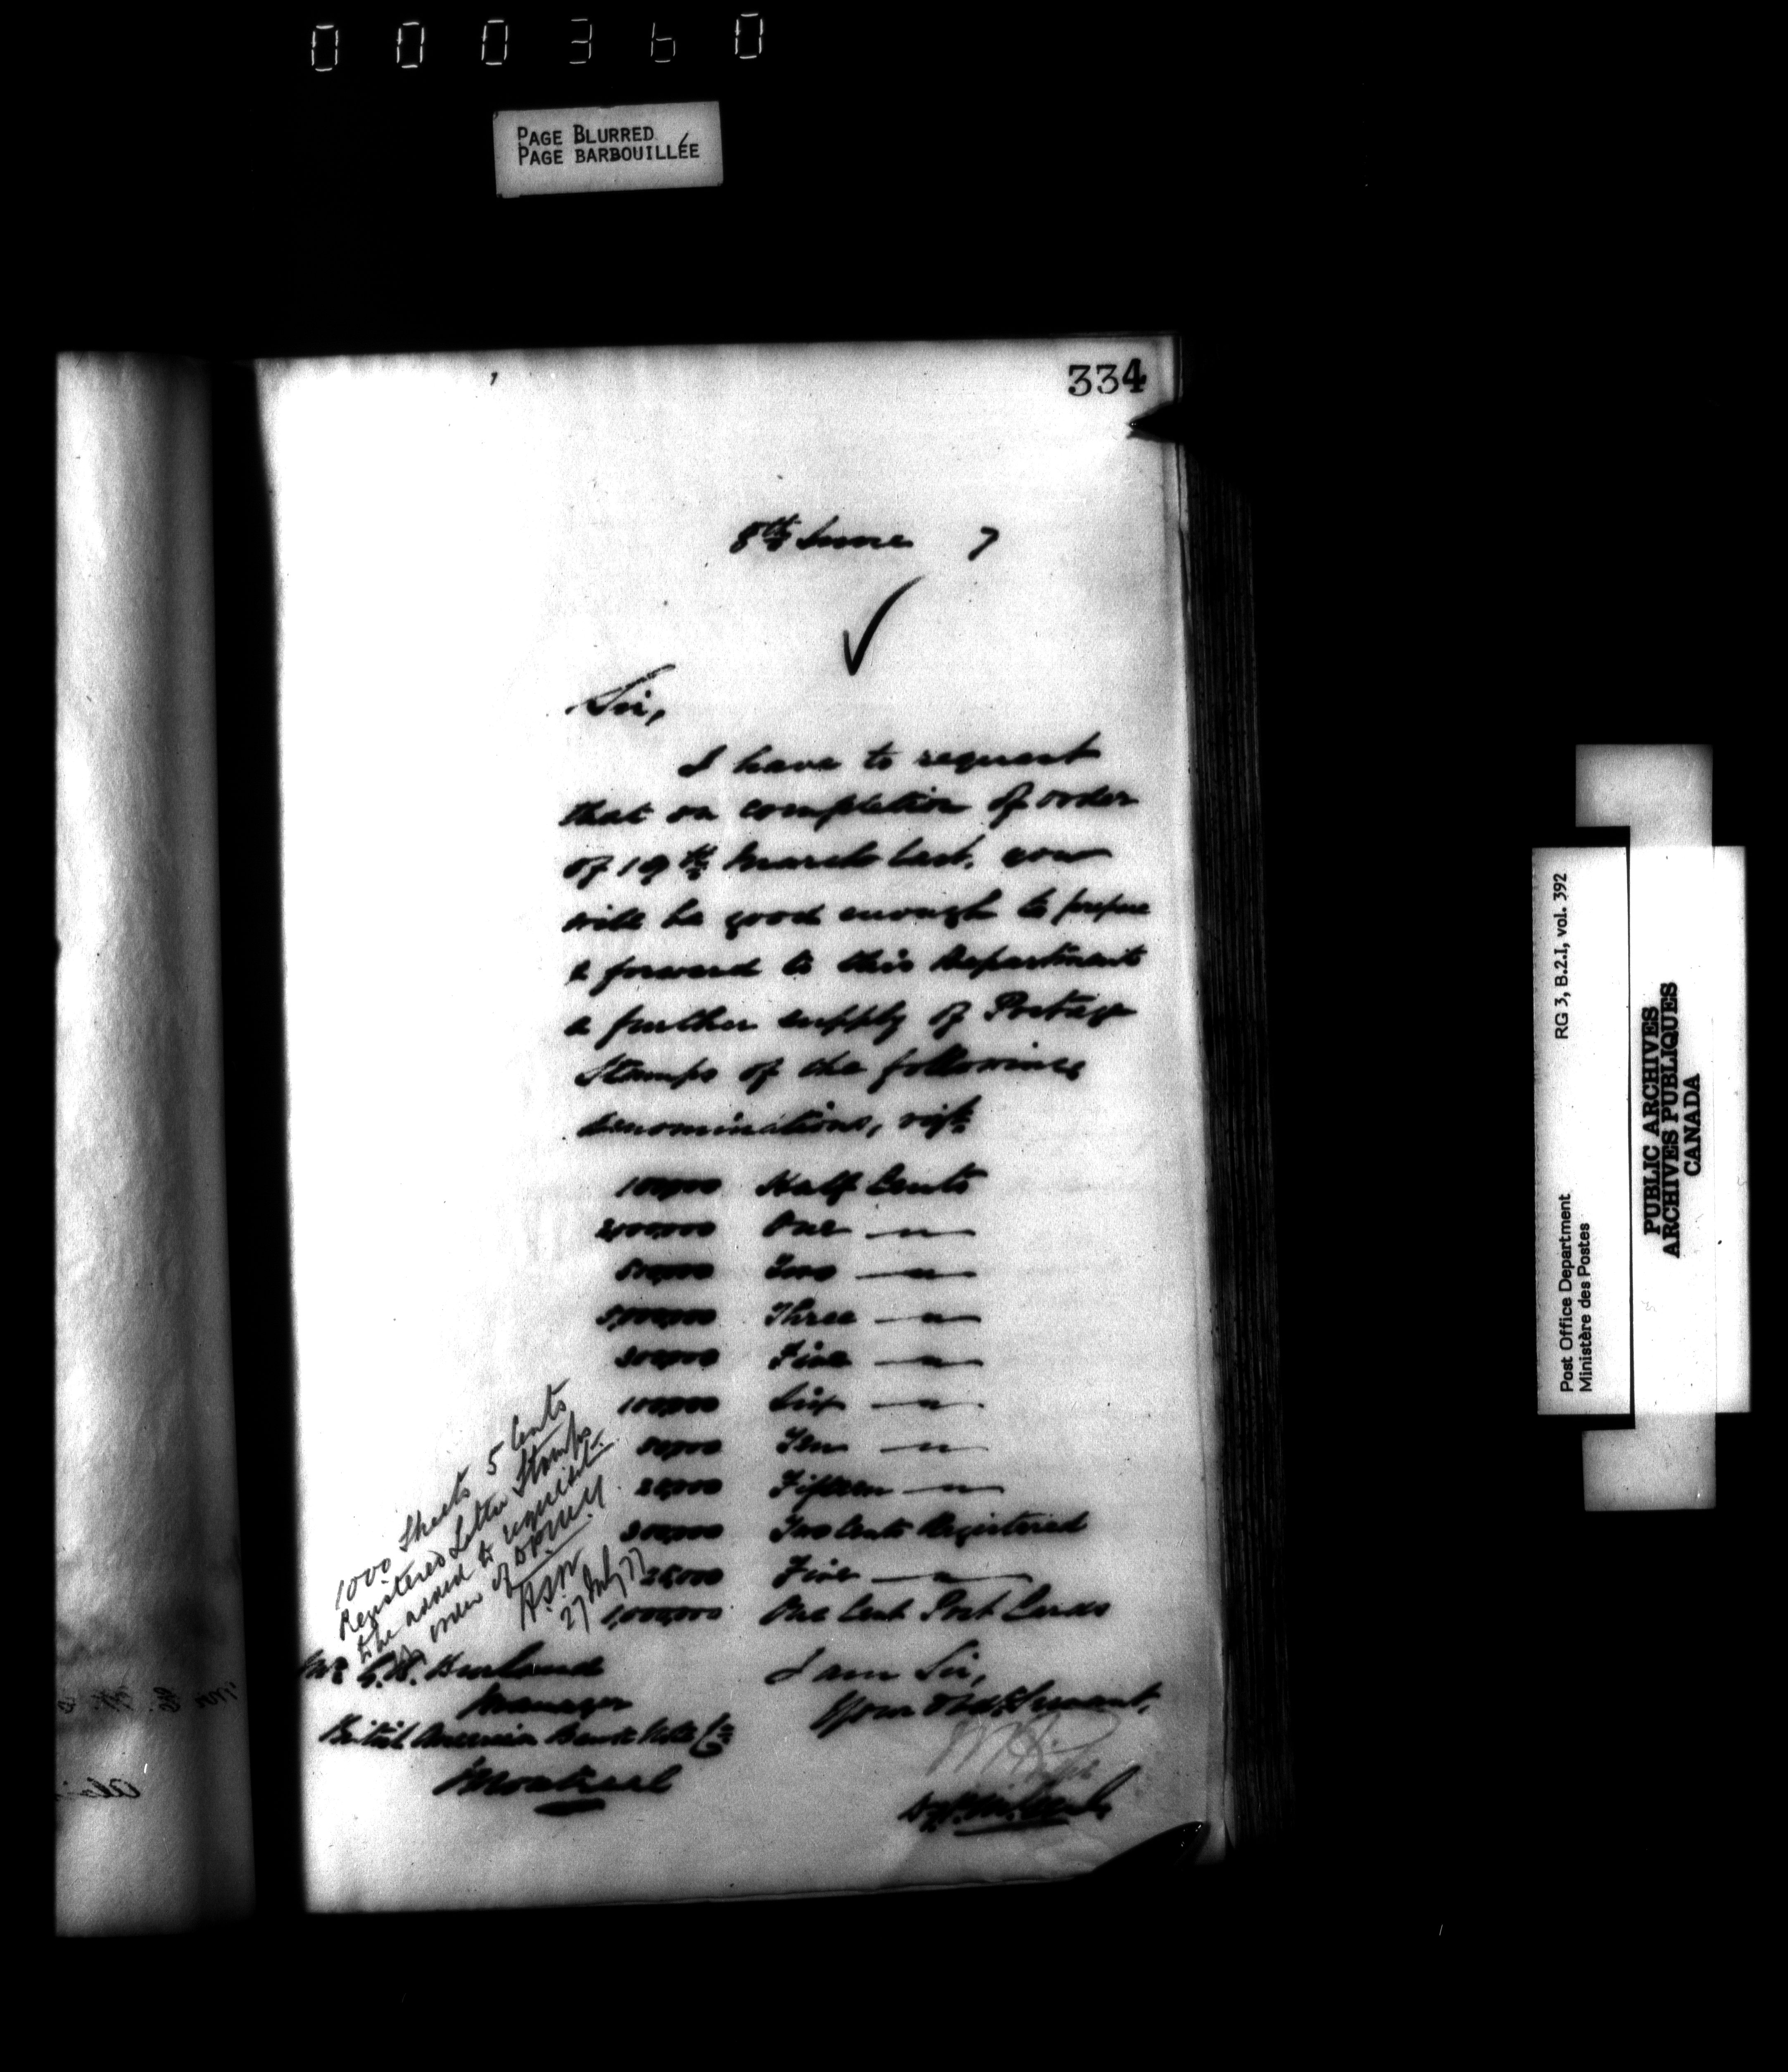 000360
PAGE BLURRED
PAGE BARBOUILLÉE
334
8th June 7
Sir,
I have to request
that on completion of order
of 19th March last, you
will be good enough to prepare
& forward to this Department
a further supply of Postage
Stamps of the following
denominations, viz:
100,000 Half Cents
2,000,000 One — " —
500,000 Two — " —
5,000,000 Three — " —
300,000 Five — " —
100,000 Six — " —
50,000 Ten — " —
25,000 Fifteen — " —
300,000 Two Cents Registered
25,000 Five — " —
1,000,000 One Cent Post Cards
1000 Sheets 5 Cents
Registered Letter Stamps
to be added to requisit.
by order of D.P.M.G.
27 July 77
I am Sir,
Your Obdt. Servant,
Mr G. B. Burland
Manager
British American Bank Note Co
Montreal
RG 3, B.2.I, vol. 392
Post Office Department
Ministère des Postes
PUBLIC ARCHIVES
ARCHIVES PUBLIQUES
CANADA